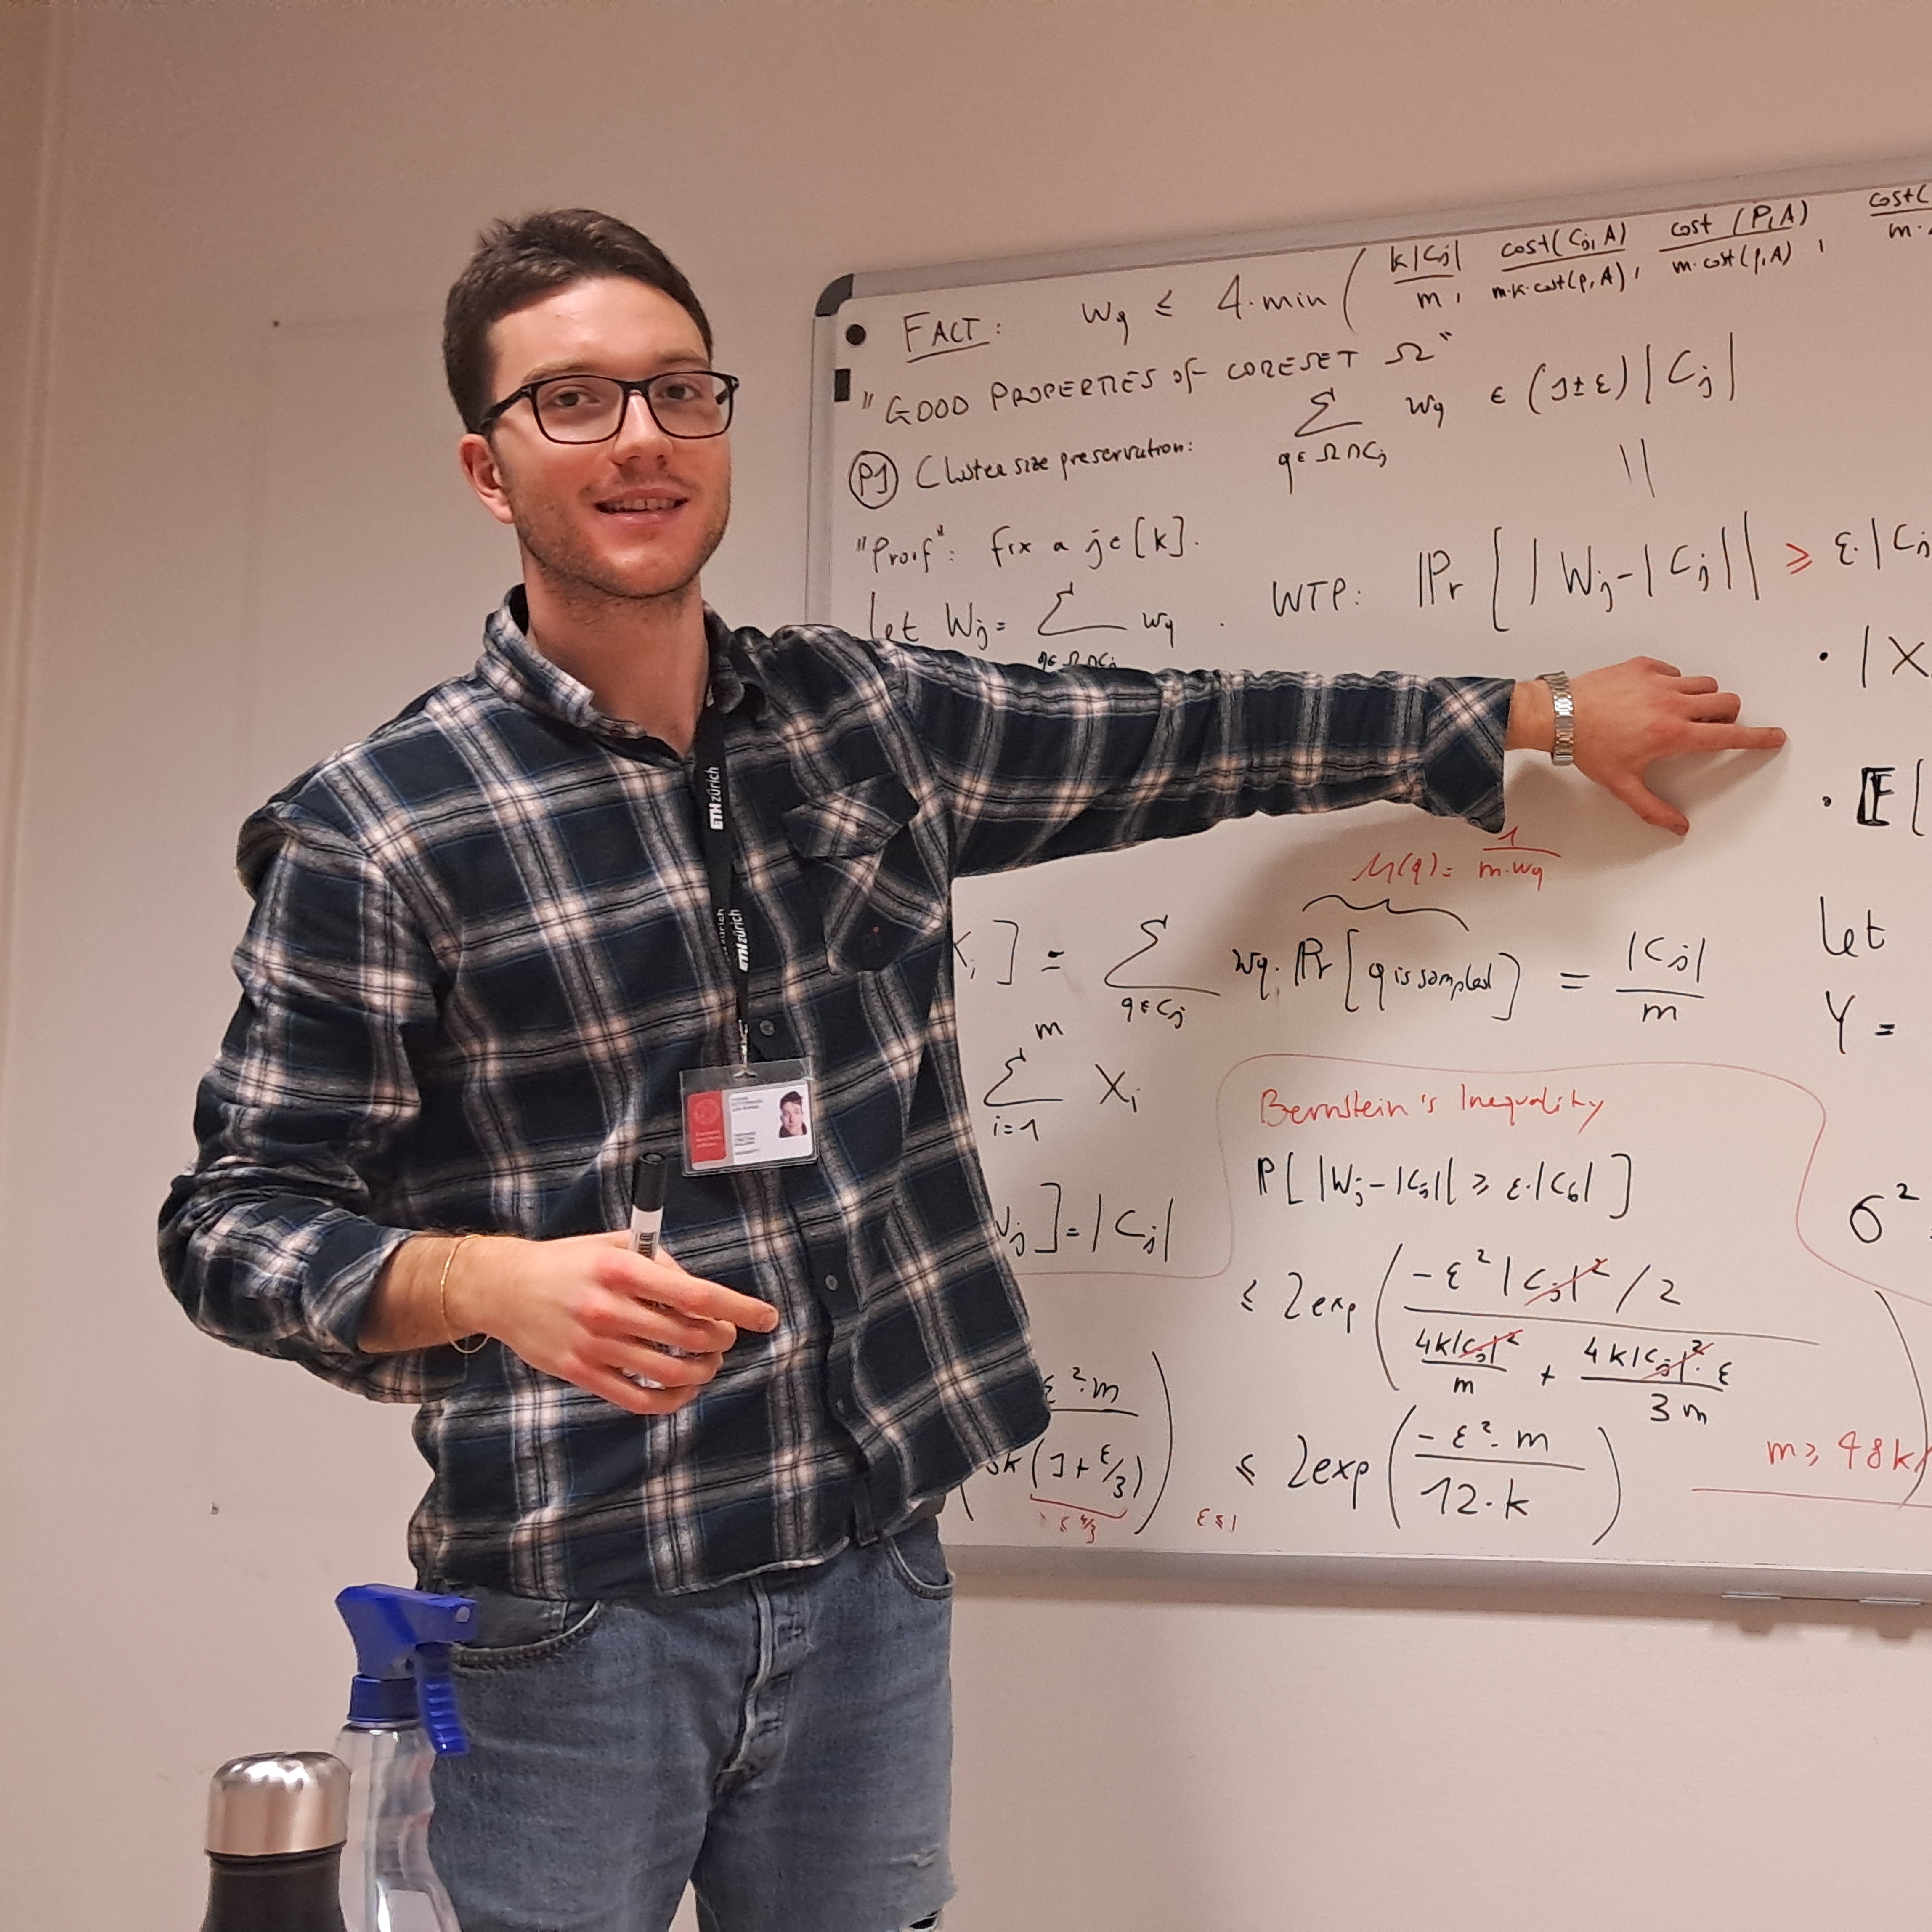 FACT: w_q ≤ 4·min( k|C_j|/m, cost(C_j,A)/m·k·cost(p,A), cost(P,A)/m·cost(p,A), cost(
"GOOD PROPERTIES OF CORESET Ω"
P1 Cluster size preservation: Σ_{q∈Ω∩C_j} w_q ∈ (1±ε)|C_j|
"Proof": fix a j∈[k].
let W_j = Σ_{q∈Ω∩C_j} w_q . WTP: Pr[ | W_j-|C_j| | ≥ ε·|C_j
· | X
· E[
μ(q) = 1/m·w_q
] = Σ_{q∈C_j} w_q·Pr[q is sampled] = |C_j|/m
let
Y =
Σ_{i=1}^{m} X_i
] = |C_j|
Bernstein's Inequality
P[ |W_j-|C_j|| ≥ ε·|C_j| ]
σ²
≤ 2exp( -ε²|C_j|²/2 / 4k|C_j|²/m + 4k|C_j|²·ε/3m )
ε²·m / k(1+ε/3) ≤ 2exp( -ε²·m / 12·k )
≤ 4/3
ε≤1
m ≥ 48k
ETH zürich
ETH zürich
zürich